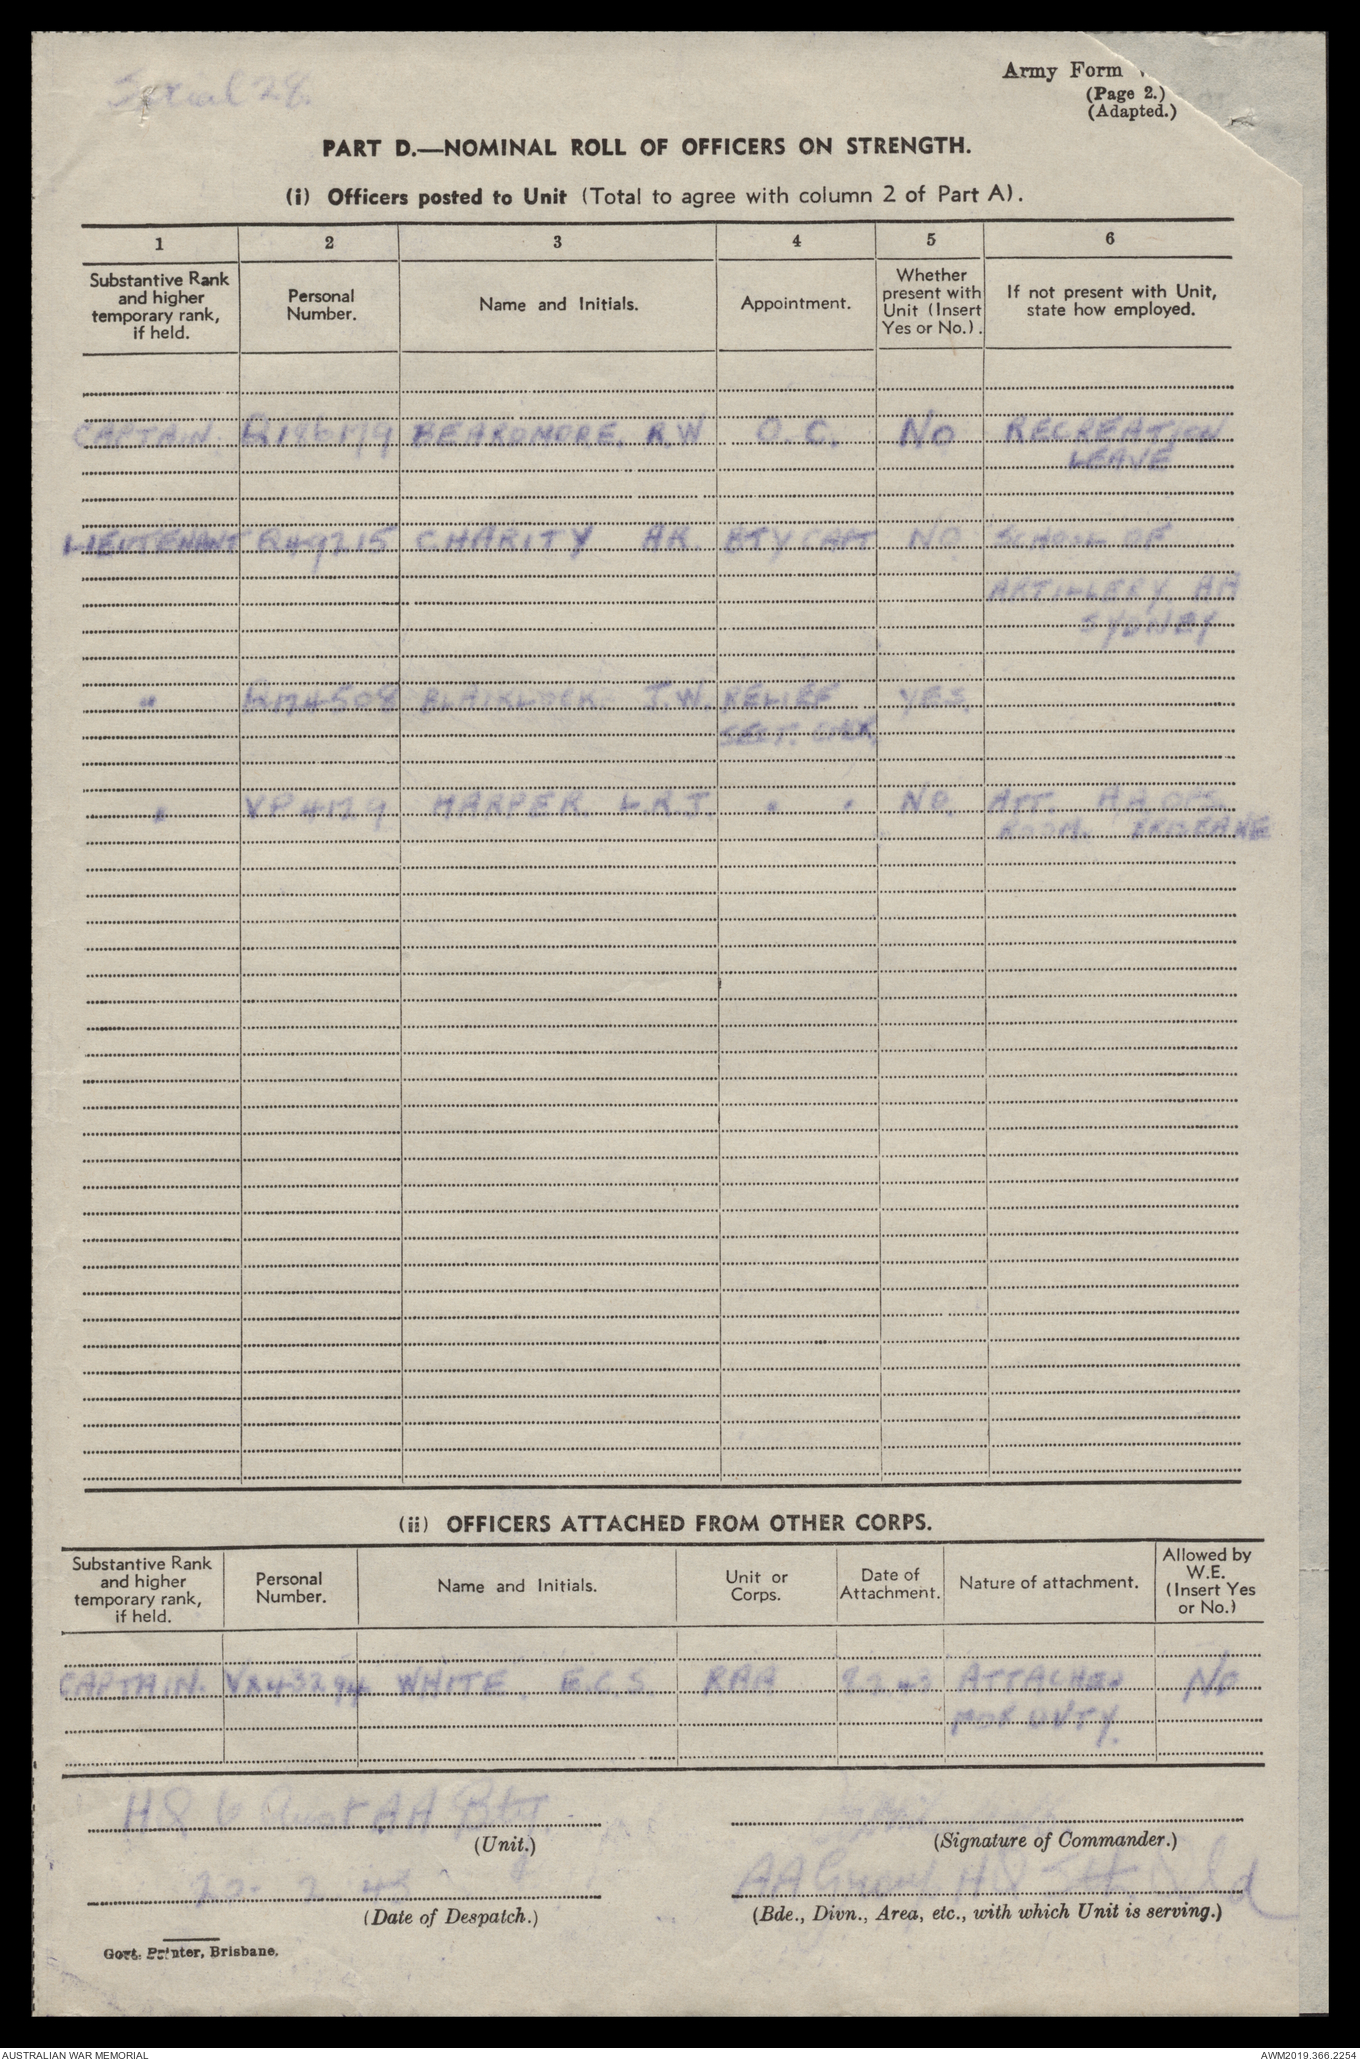 Serial 28.
Army Form
(Page 2.)
(Adapted.)
PART D.—NOMINAL ROLL OF OFFICERS ON STRENGTH.
(i) Officers posted to Unit (Total to agree with column 2 of Part A).
1 2 3 4 5 6
Substantive Rank and higher temporary rank, if held. Personal Number. Name and Initials. Appointment. Whether present with Unit (Insert Yes or No.). If not present with Unit, state how employed.
CAPTAIN. BEARDMORE. R.W O.C. No RECREATION
LEAVE
LIEUTENANT Q49215 CHARITY AR. BTY CAPT NO SCHOOL OF
ARTILLERY AA
SYDNEY
" BLAIKLOCK. J.W. RELIEF YES.
SECT. CMDR.
" VP4129 HARPER. L.R.J. " " NO. ATT. AA OPS.
ROOM. BRISBANE
(ii) OFFICERS ATTACHED FROM OTHER CORPS.
Substantive Rank and higher temporary rank, if held. Personal Number. Name and Initials. Unit or Corps. Date of Attachment. Nature of attachment. Allowed by W.E. (Insert Yes or No.)
CAPTAIN. VX43294 WHITE. E.C.S. RAA 9.2.43 ATTACHED No
FOR DUTY.
HQ 6 Aust AA Bty.
(Unit.)
(Signature of Commander.)
20. 2. 43
AA Group HQ Sth. Qld
(Date of Despatch.)
(Bde., Divn., Area, etc., with which Unit is serving.)
Govt. Printer, Brisbane.
AUSTRALIAN WAR MEMORIAL
AWM2019.366.2254